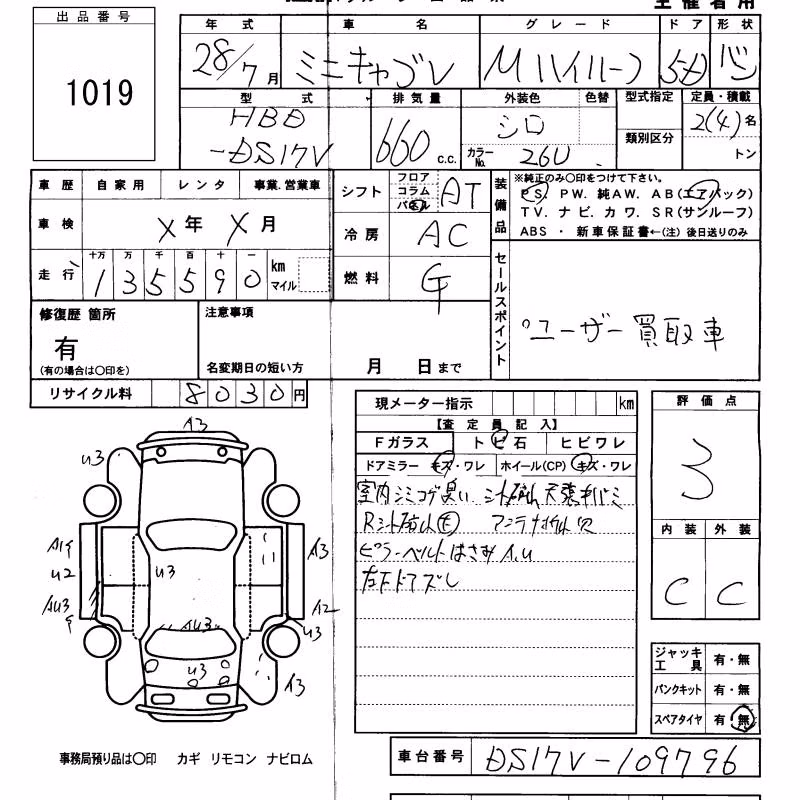 主催者用
出品番号
1019
年式 車名 グレード ドア 形状
28/7月 ミニキャブV Mハイルーフ 5D バン
型式 排気量 外装色 色替 型式指定 定員・積載
HBD
-DS17V 660 c.c. シロ 2(4)名
カラーNo. 26U 類別区分 トン
車歴 自家用 レンタ 事業.営業車
シフト フロア コラム パネル AT
装備品 ※純正のみ〇印をつけて下さい。
PS. PW. 純AW. AB(エアバック)
TV. ナビ. カワ. SR(サンルーフ)
ABS ・ 新車保証書←(注) 後日送りのみ
車検 X年 X月
冷房 AC
走行 十万 万 千 百 十 一
135590 km マイル
燃料 G
セールスポイント
°ユーザー買取車
修復歴 箇所
有
(有の場合は〇印を)
注意事項
名変期日の短い方 月 日まで
リサイクル料 8030円
現メーター指示 km
【査定員記入】
Fガラス トビ石 ヒビワレ
ドアミラー キズ・ワレ ホイール(CP) キズ・ワレ
室内シミコゲ臭い
ピラーベルトはさみA.U
左下ドアズレ
評価点
3
内装 外装
C C
A3
U3
A3
U2
U3
AU3
A2
U3
AU3
U3
A3
ジャッキ工具 有・無
パンクキット 有・無
スペアタイヤ 有・無
事務局預り品は〇印 カギ リモコン ナビロム
車台番号 DS17V-109796